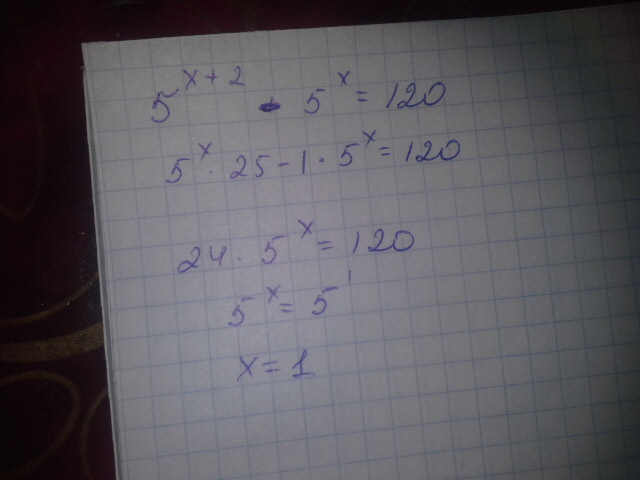 5^{x+2} - 5^x = 120
5^x · 25 - 1 · 5^x = 120
24 · 5^x = 120
5^x = 5^1
x = 1